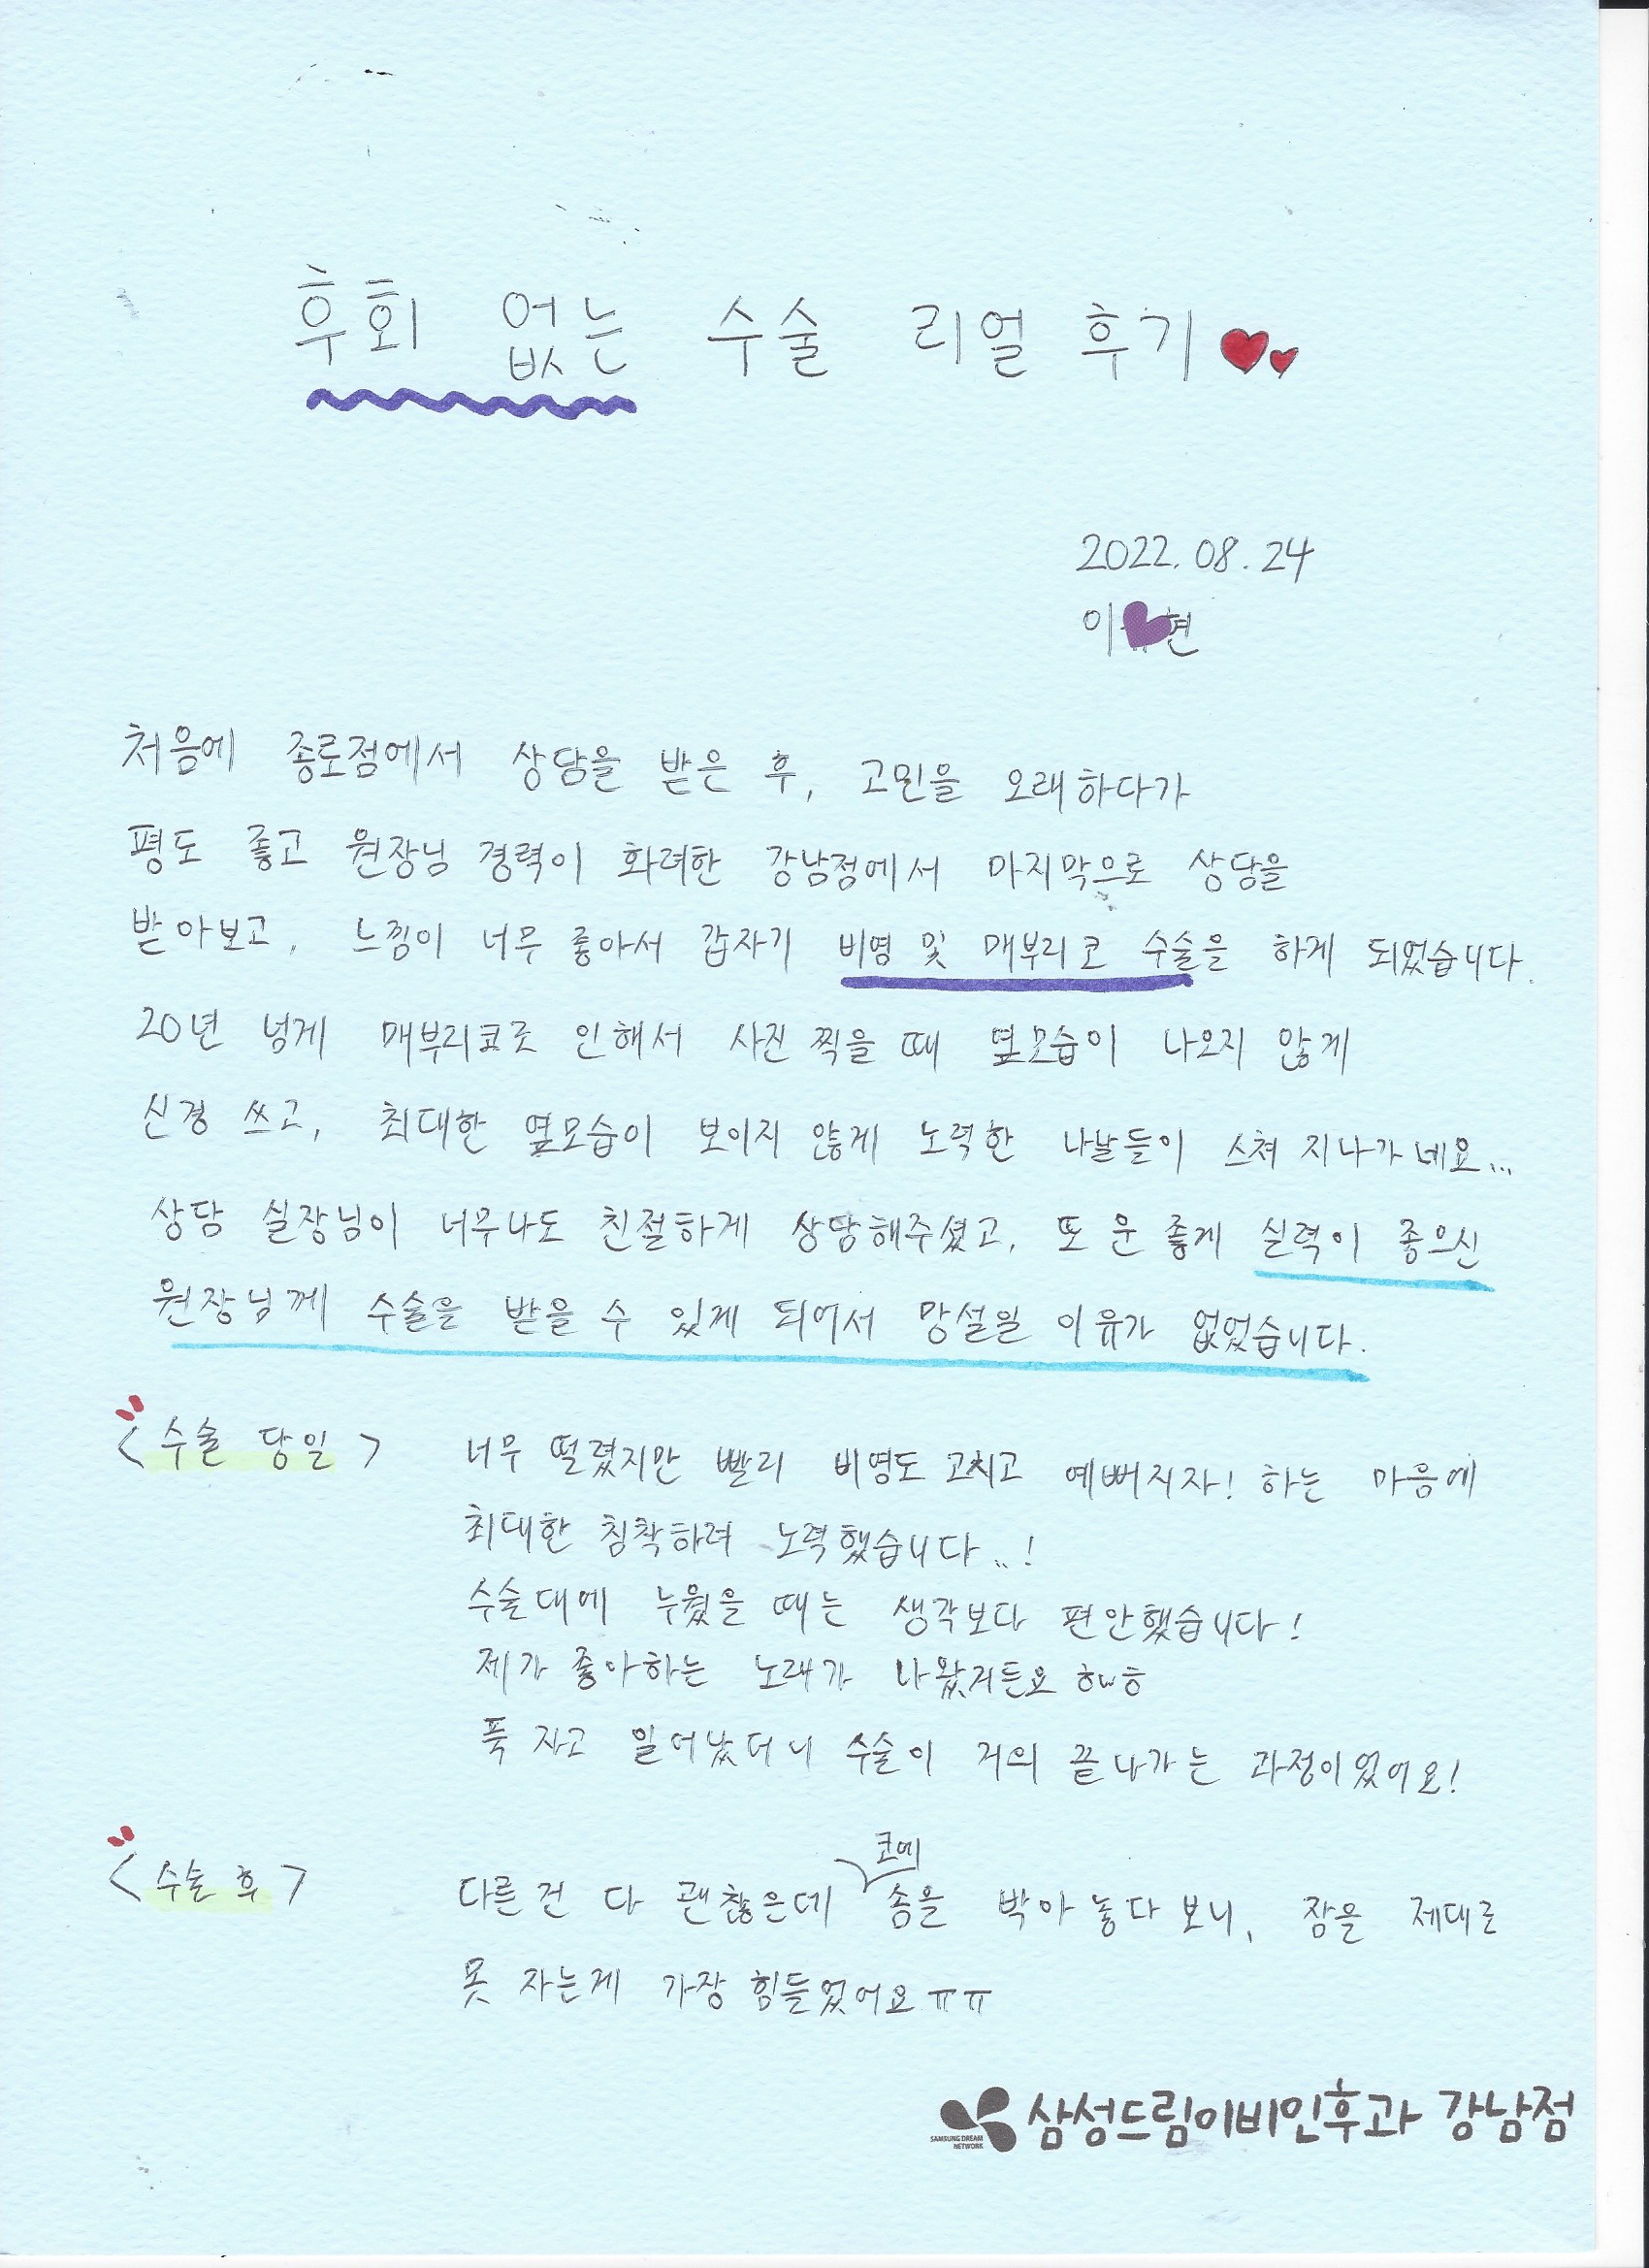 후회 없는 수술 리얼 후기
2022.08.24
이 현
처음에 종로점에서 상담을 받은 후, 고민을 오래하다가
평도 좋고 원장님 경력이 화려한 강남점에서 마지막으로 상담을
받아보고, 느낌이 너무 좋아서 갑자기 비염 및 매부리코 수술을 하게 되었습니다.
20년 넘게 매부리코로 인해서 사진 찍을 때 옆모습이 나오지 않게
신경 쓰고, 최대한 옆모습이 보이지 않게 노력한 나날들이 스쳐 지나가네요...
상담 실장님이 너무나도 친절하게 상담해주셨고, 또 운 좋게 실력이 좋으신
원장님께 수술을 받을 수 있게 되어서 망설일 이유가 없었습니다.
<수술 당일> 너무 떨렸지만 빨리 비염도 고치고 예뻐지자! 하는 마음에
최대한 침착하려 노력했습니다..!
수술대에 누웠을 때는 생각보다 편안했습니다!
제가 좋아하는 노래가 나왔거든요 ㅎwㅎ
푹 자고 일어났더니 수술이 거의 끝나가는 과정이었어요!
<수술 후> 다른건 다 괜찮은데 코에 솜을 박아 놓다보니, 잠을 제대로
못 자는게 가장 힘들었어요 ㅠㅠ
삼성드림이비인후과 강남점
SAMSUNG DREAM
NETWORK